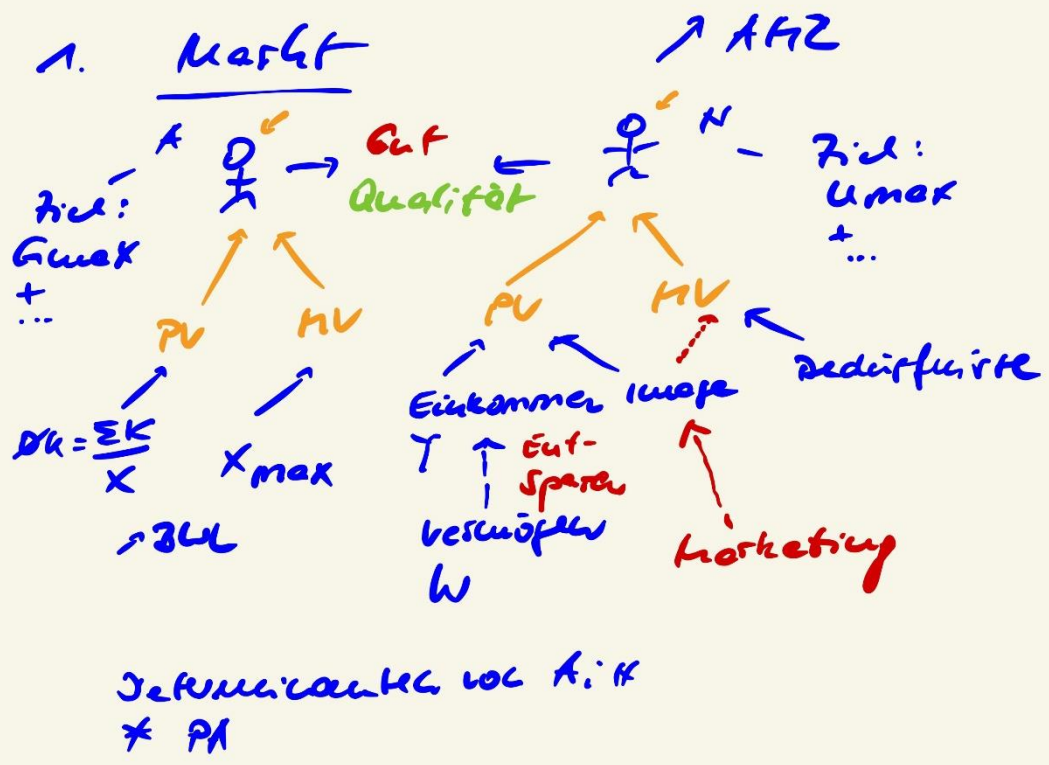 1. Markt
↗ AMZ
A
N
Gut
Qualität
Ziel:
Gmax
+
...
Ziel:
Umax
+
...
PV
MV
PV
MV
Einkommen
Image
Bedürfnisse
Øk = ΣK
X
Xmax
Y
Ent-
sparen
↗ BWL
Vermögen
W
Marketing
Determinanten von A; N
* PA